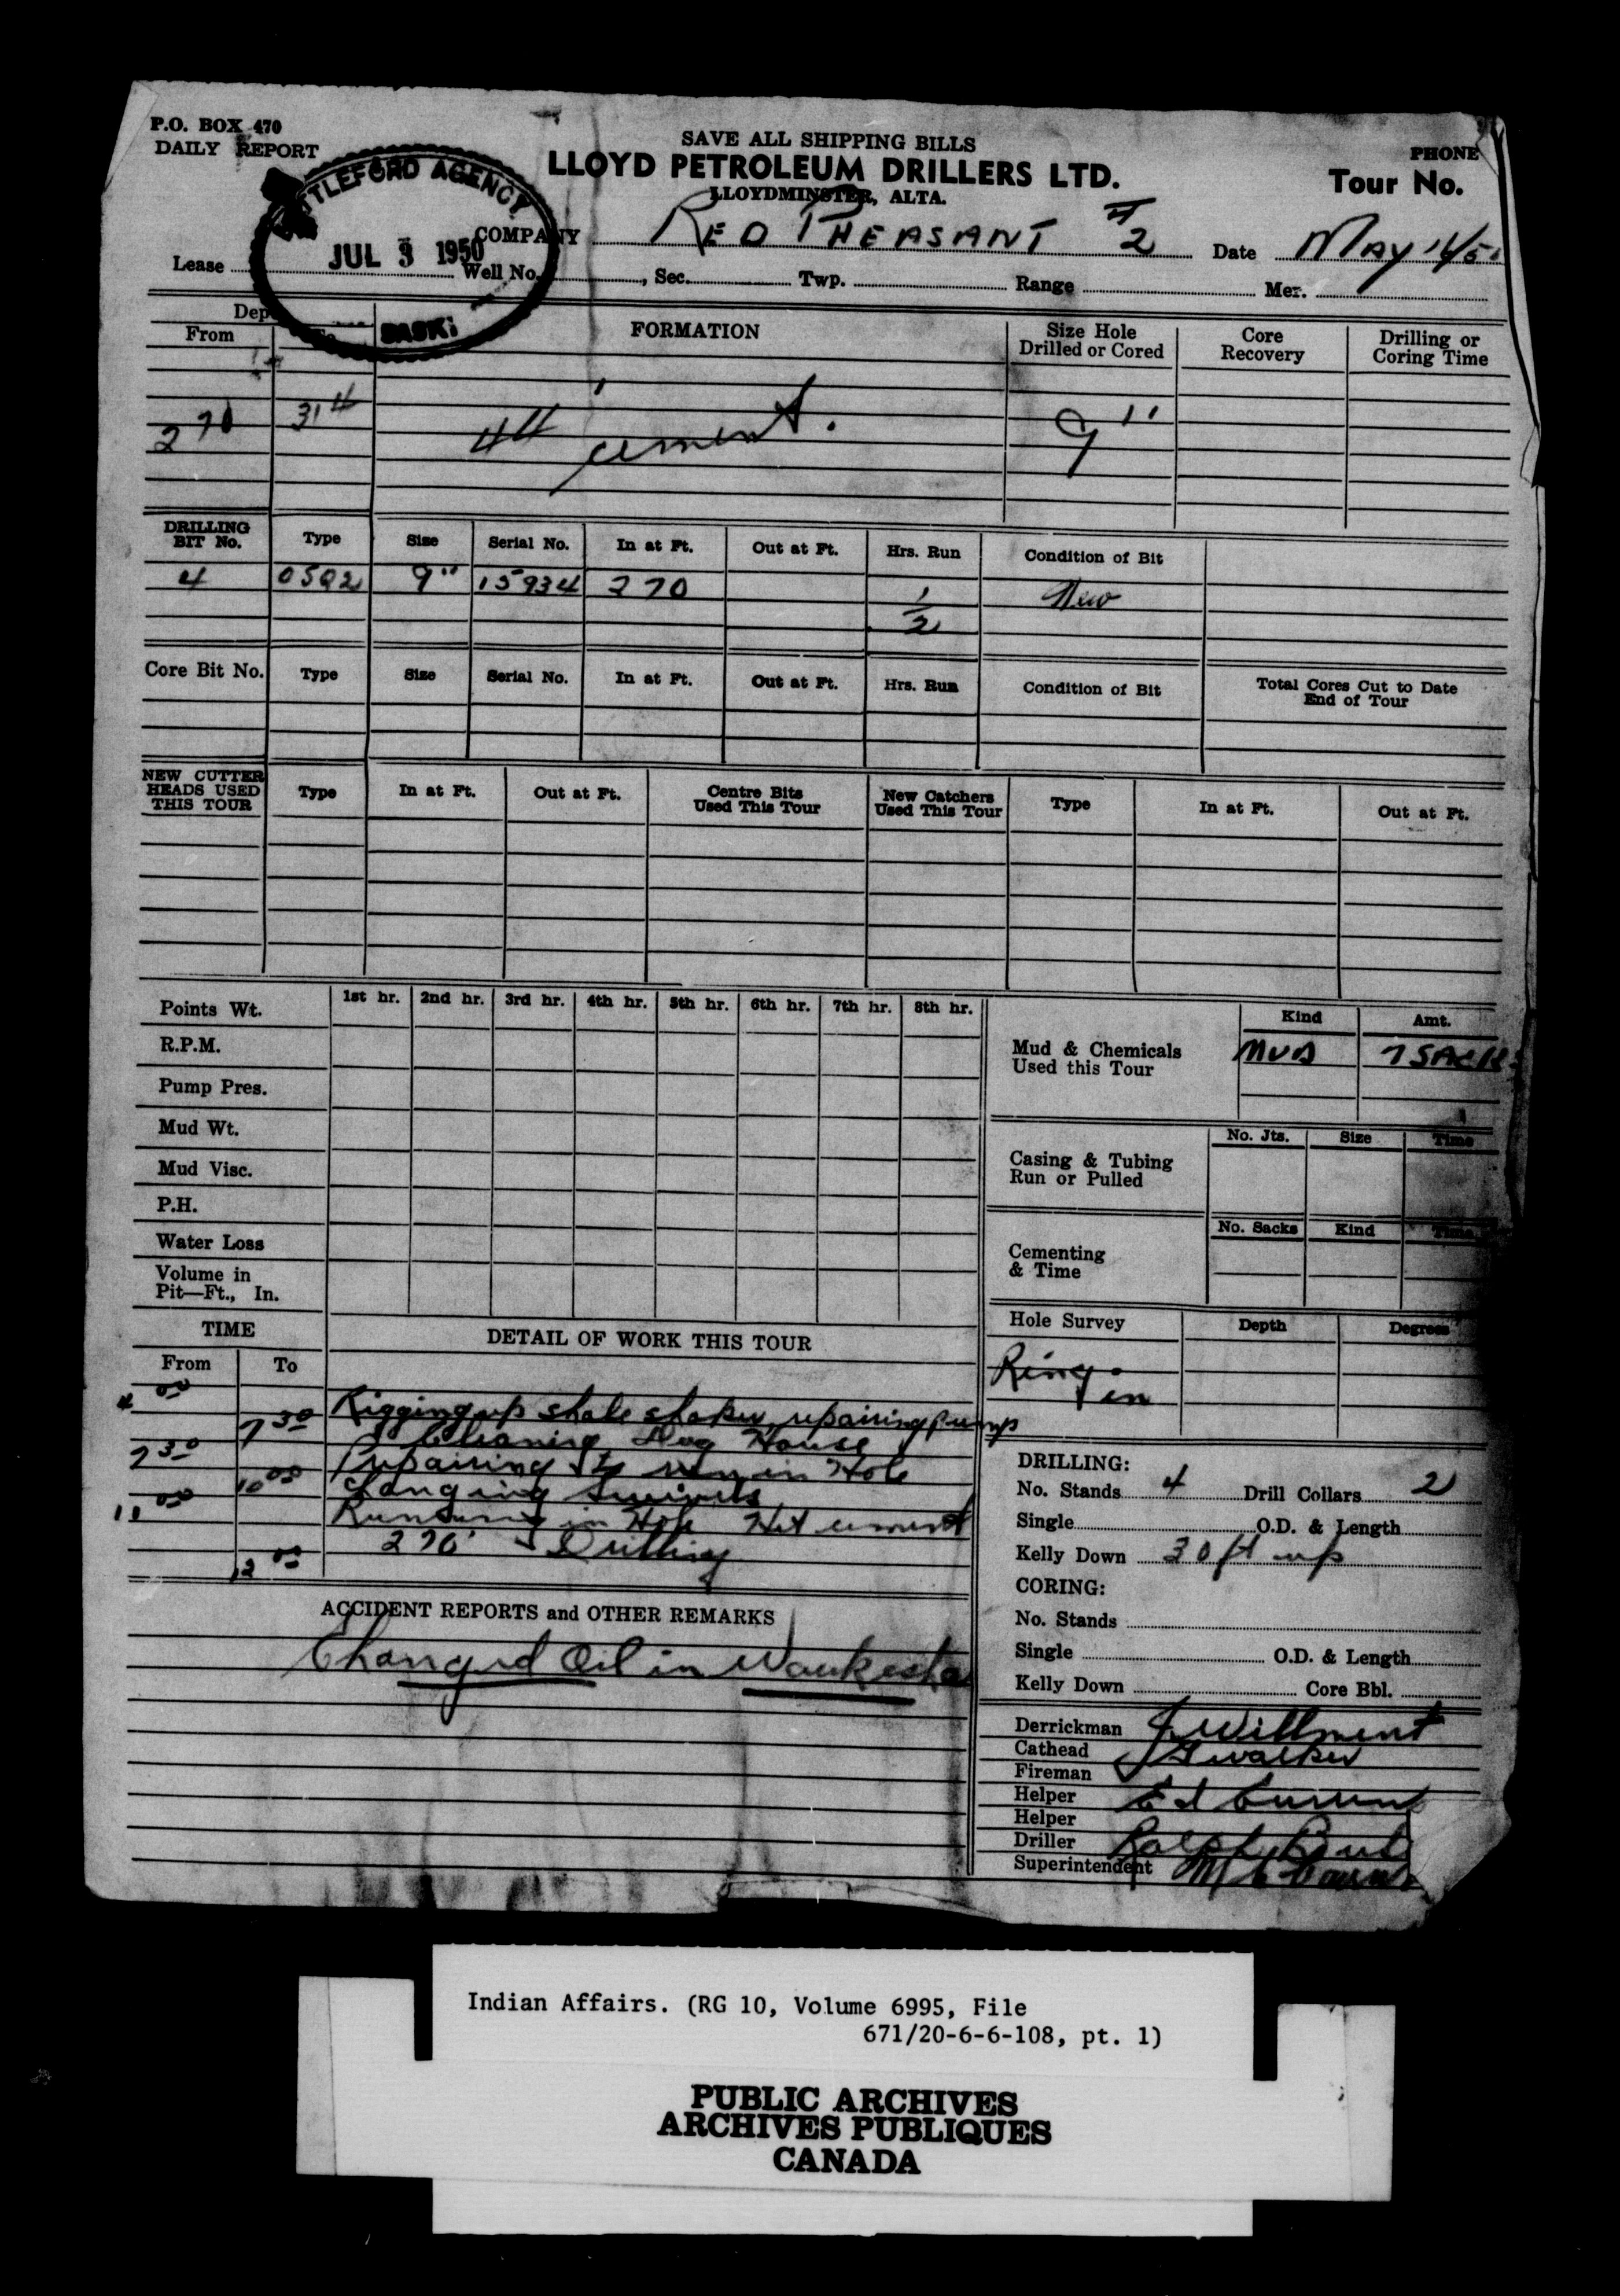 P.O. BOX 470
DAILY REPORT
SAVE ALL SHIPPING BILLS
LLOYD PETROLEUM DRILLERS LTD.
LLOYDMINSTER, ALTA.
PHONE
Tour No.
TTLEFORD AGENCY
JUL 3 1950
SASK.
COMPANY RED PHEASANT #2 Date MAY
Lease Well No. , Sec. Twp. Range Mer.
Dep
From To FORMATION Size Hole Drilled or Cored Core Recovery Drilling or Coring Time
270 314 44' cement. 9"
DRILLING BIT No. Type Size Serial No. In at Ft. Out at Ft. Hrs. Run Condition of Bit
4 OSQ2 9" 15934 270 1/2 New
Core Bit No. Type Size Serial No. In at Ft. Out at Ft. Hrs. Run Condition of Bit Total Cores Cut to Date End of Tour
NEW CUTTER HEADS USED THIS TOUR Type In at Ft. Out at Ft. Centre Bits Used This Tour New Catchers Used This Tour Type In at Ft. Out at Ft.
1st hr. 2nd hr. 3rd hr. 4th hr. 5th hr. 6th hr. 7th hr. 8th hr.
Points Wt.
R.P.M.
Pump Pres.
Mud Wt.
Mud Visc.
P.H.
Water Loss
Volume in
Pit—Ft., In.
Kind Amt.
Mud & Chemicals
Used this Tour
MUD 7 SACKS
No. Jts. Size Time
Casing & Tubing
Run or Pulled
No. Sacks Kind Time
Cementing
& Time
Hole Survey Depth Degrees
Ring in
TIME DETAIL OF WORK THIS TOUR
From To
4 00 Rigging up shale shaker, repairing pump
7 30 Cleaning Dog House
7 30 Prepairing to run in Hole
10 00 Changing swivels
11 00 Running in Hole Hit cement
270' & Drilling
12 00
ACCIDENT REPORTS and OTHER REMARKS
Changed Oil in Waukesha
DRILLING:
No. Stands 4 Drill Collars 2
Single O.D. & Length
Kelly Down 30 ft up
CORING:
No. Stands
Single O.D. & Length
Kelly Down Core Bbl.
Derrickman J. Willment
Cathead Walker
Fireman
Helper Ed
Helper
Driller Ralph
Superintendent
Indian Affairs. (RG 10, Volume 6995, File
671/20-6-6-108, pt. 1)
PUBLIC ARCHIVES
ARCHIVES PUBLIQUES
CANADA